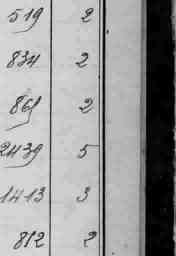 519 2
834 2
861 2
2439 5
1413 3
812 2